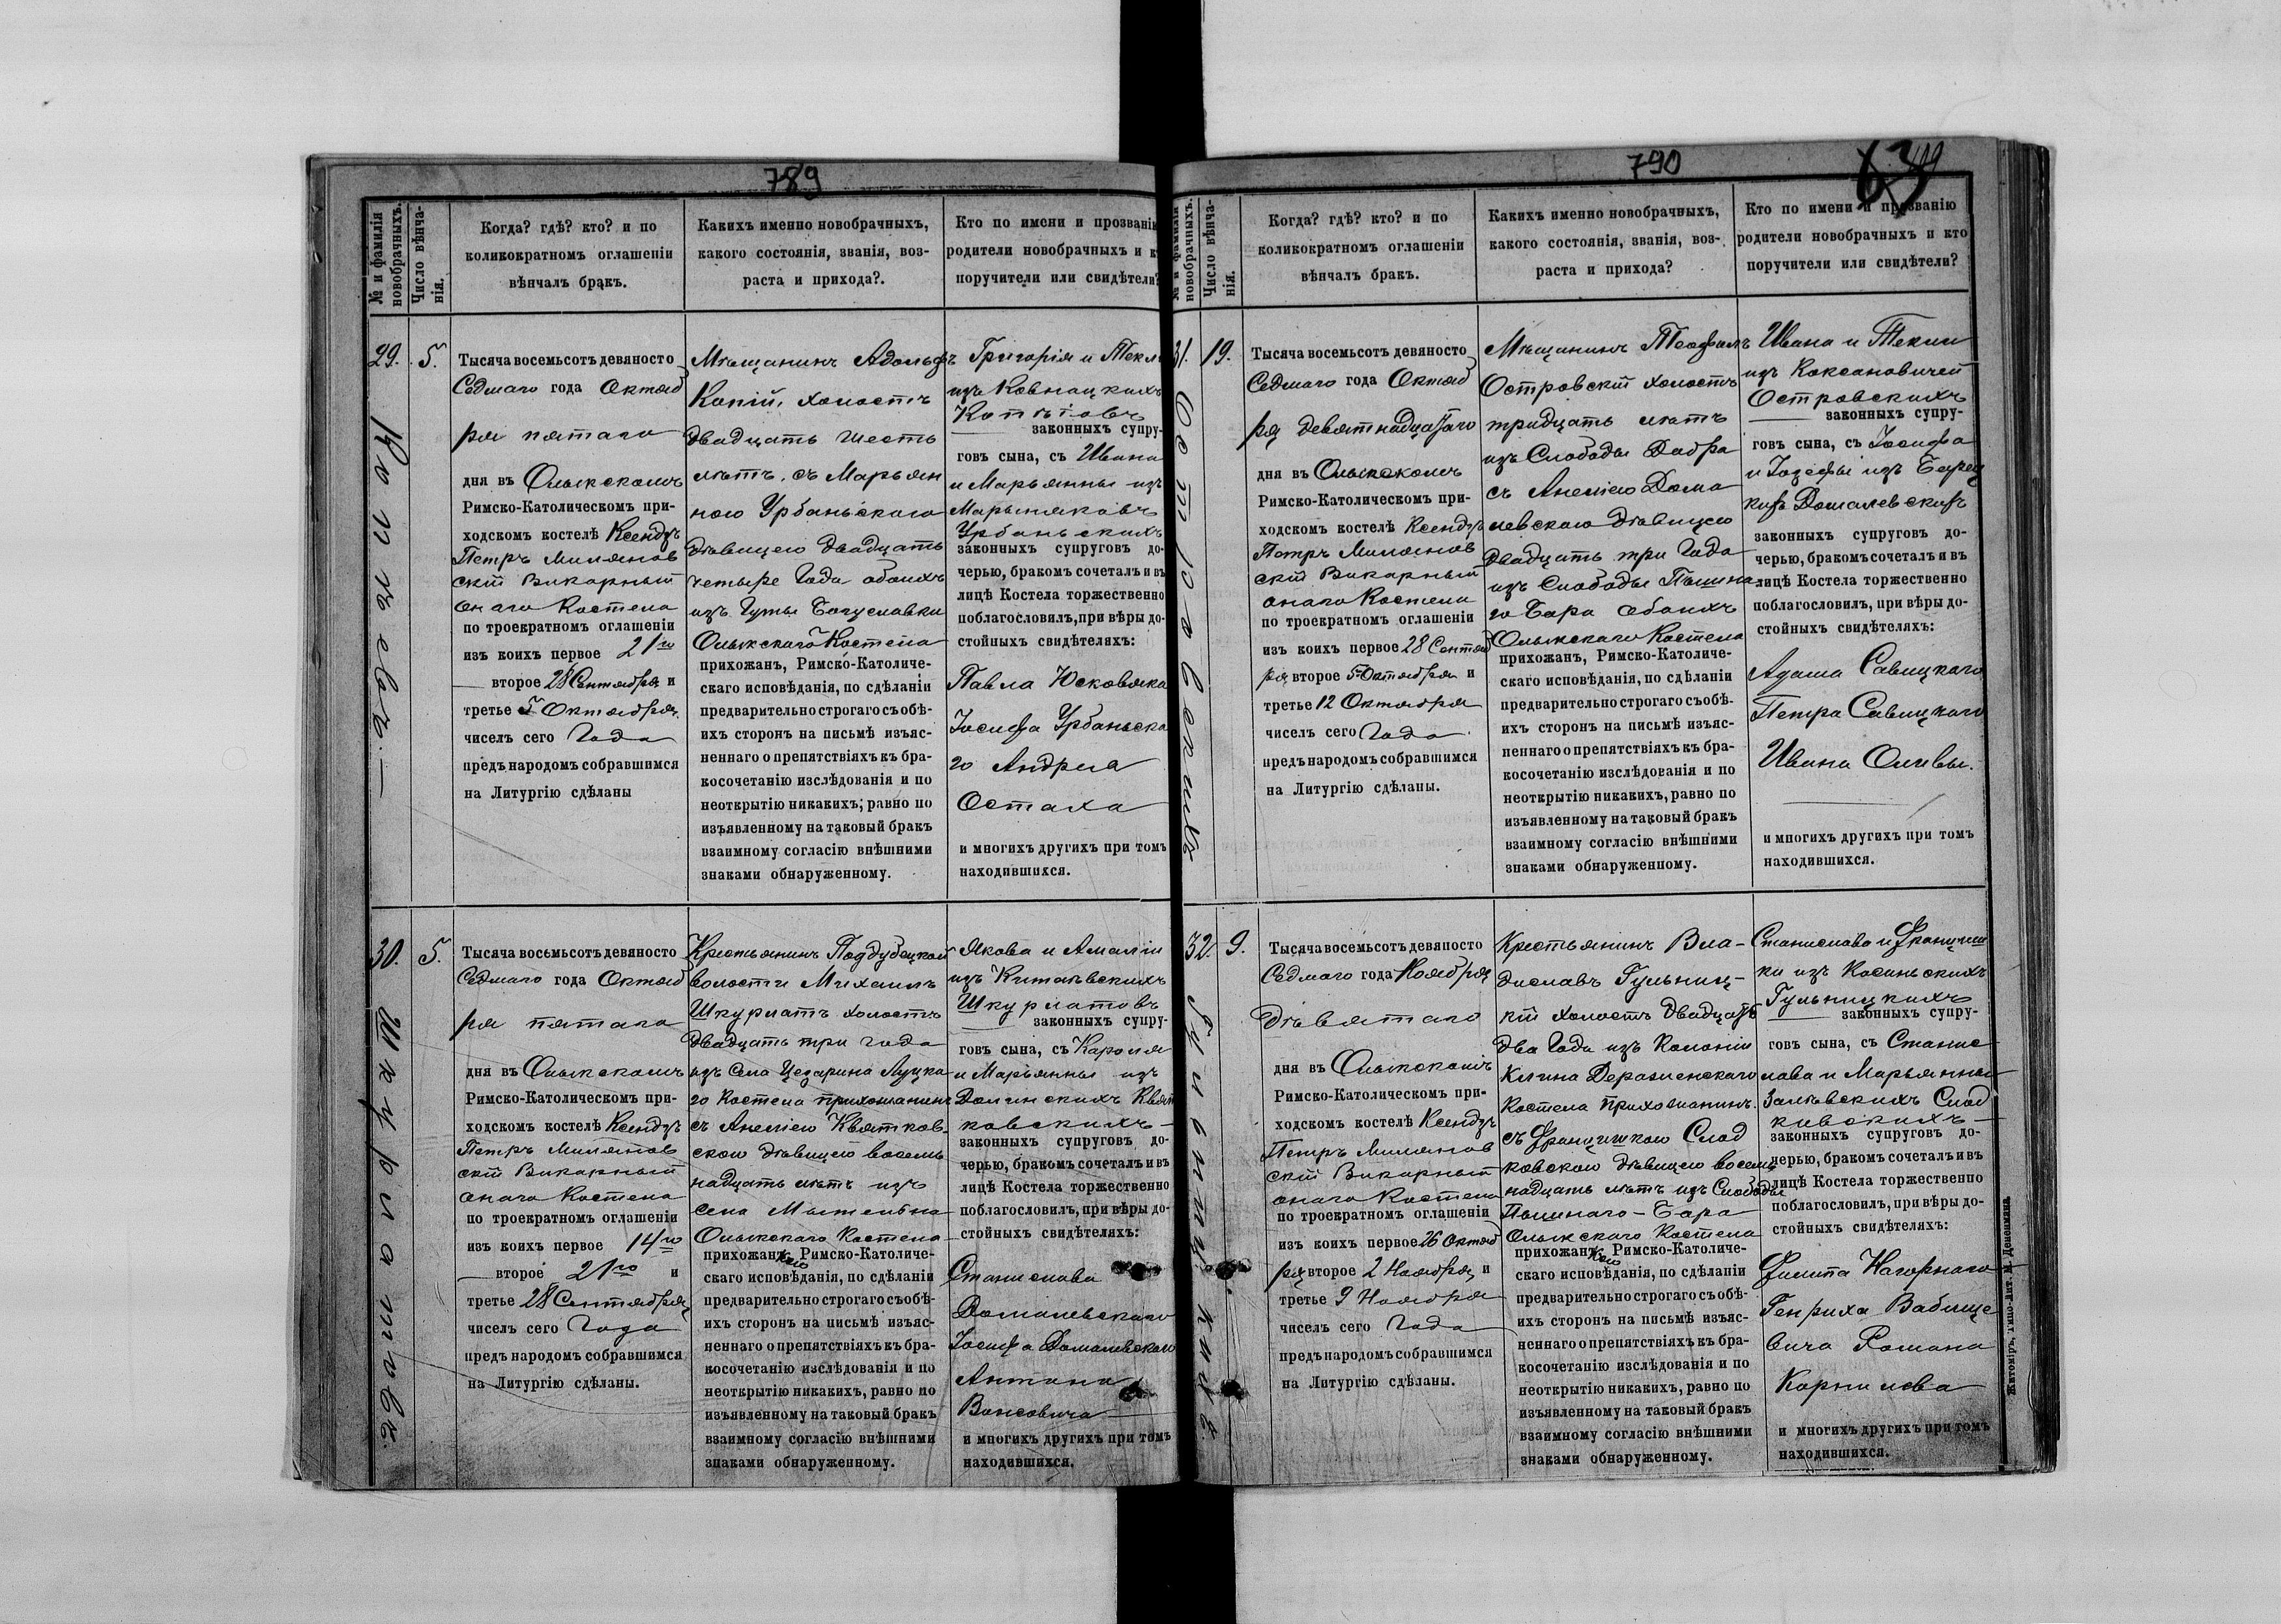 789
№ и фамилія
новобрачныхъ.
Число вѣнча-
нія.
Когда? гдѣ? кто? и по
коликократномъ оглашеніи
вѣнчалъ бракъ.
Какихъ именно новобрачныхъ,
какого состоянія, званія, воз-
раста и прихода?.
Кто по имени и прозванію
родители новобрачныхъ и к
поручители или свидѣтели?
29.
5.
Тысяча восемьсотъ девяносто
Седмаго года Октяб
ря пятаго
дня въ Олыкскомъ
Римско-Католическомъ при-
ходскомъ костелѣ Ксендзъ
Петръ Милянов
скій Викарный
онаго Костела
по троекратномъ оглашеніи
изъ коихъ первое 21го
второе 28 Сентября и
третье 5 Октября
числъ сего Года
предъ народомъ собравшимся
на Литургію сдѣланы
Мѣщанинъ Адольфъ
Копій, холостъ
двадцать шесть
лѣтъ, съ Марьян
ною Урбаньскаго
дѣвицею двадцать
четыре Года обоихъ
изъ Гуты Богуславки
Олыкскаго Костела
прихожанъ, Римско-Католиче-
скаго исповѣданія, по сдѣланіи
предварительно строгаго съ обѣ-
ихъ сторонъ на письмѣ изъяс-
неннаго о препятствіяхъ къ бра-
косочетанію изслѣдованія и по
неоткрытію никакихъ; равно по
изъявленному на таковый бракъ
взаимному согласію внѣшними
знаками обнаруженному.
Григорія и Текл
изъ Ковнацкихъ
Копѣіовъ
законныхъ супру-
говъ сына, съ Ивана
и Марьянны изъ
Марыняковъ
Урбаньскихъ
законныхъ супруговъ до-
черью, бракомъ сочеталъ и въ
лицѣ Костела торжественно
поблагословилъ, при вѣры до-
стойныхъ свидѣтеляхъ:
Павла Юсковяка
Іосифа Урбаньска
го Андрея
Остаха
и многихъ другихъ при томъ
находившихся.
30.
5.
Шкурлатовъ.
Тысяча восемьсотъ девяносто
Седмаго года Октяб
ря пятаго
дня въ Олыкскомъ
Римско-Католическомъ при-
ходскомъ костелѣ Ксендзъ
Петръ Милянов
скій Викарный
онаго Костела
по троекратномъ оглашеніи
изъ коихъ первое 14го
второе 21го и
третье 28 Сентября
числъ сего Года
предъ народомъ собравшимся
на Литургію сдѣланы.
Крестьянинъ Поддубецкой
волости Михаилъ
Шкурлатъ холостъ
двадцать три года
изъ Села Цезарина Луцка
го Костела прихожанинъ
съ Анелією Квятков-
скою дѣвицею восем
надцать лѣтъ изъ
села Мытельна
Олыкскаго Костела
прихожанкою Римско-Католиче-
скаго исповѣданія, по сдѣланіи
предварительно строгаго съ обѣ-
ихъ сторонъ на письмѣ изъяс-
неннаго о препятствіяхъ къ бра-
косочетанію изслѣдованія и по
неоткрытію никакихъ, равно по
изъявленному на таковый бракъ
взаимному согласію внѣшними
знаками обнаруженному.
Якова и Амаліи
изъ
Шкурлатовъ
законныхъ супру-
говъ сына, съ Кароля
и Марьянны изъ
Долинскихъ Квят
ковскихъ
законныхъ супруговъ до-
черью, бракомъ сочеталъ и въ
лицѣ Костела торжественно
поблагословилъ, при вѣры до-
стойныхъ свидѣтеляхъ:
Станислава
Домалевскаго
Іосифа Домалевскаго
Антона
Вонсовича
и многихъ другихъ при томъ
находившихся.
790
63
№ и фамилія
новобрачныхъ.
Число вѣнча-
нія.
Когда? гдѣ? кто? и по
коликократномъ оглашеніи
вѣнчалъ бракъ.
Какихъ именно новобрачныхъ,
какого состоянія, званія, воз-
раста и прихода?
Кто по имени и прозванію
родители новобрачныхъ и кто
поручители или свидѣтели?
31.
19.
Островскихъ
Тысяча восемьсотъ девяносто
Седмаго года Октяб
ря девятнадцатаго
дня въ Олыкскомъ
Римско-Католическомъ при-
ходскомъ костелѣ Ксендзъ
Петръ Милянов
скій Викарный
онаго Костела
по троекратномъ оглашеніи
изъ коихъ первое 28 Сентяб
ря второе 5 Октября и
третье 12 Октября
числъ сего Года
предъ народомъ собравшимся
на Литургію сдѣланы.
Мѣщанинъ Теофилъ
Островскій холостъ
тридцать лѣтъ
изъ Слободы Добра
съ Анелією Дома
левскою дѣвицею
двадцать три Года
изъ Слободы Пышна
го Бара обоихъ
Олыкскаго Костела
прихожанъ, Римско-Католиче-
скаго исповѣданія, по сдѣланіи
предварительно строгаго съ обѣ-
ихъ сторонъ на письмѣ изъяс-
неннаго о препятствіяхъ къ бра-
косочетанію изслѣдованія и по
неоткрытію никакихъ, равно по
изъявленному на таковый бракъ
взаимному согласію внѣшними
знаками обнаруженному.
Ивана и Текли
изъ Коксановичей
Островскихъ
законныхъ супру-
говъ сына, съ Іосифа
и Іозефы изъ
Домалевскихъ
законныхъ супруговъ до-
черью, бракомъ сочеталъ и въ
лицѣ Костела торжественно
поблагословилъ, при вѣры до-
стойныхъ свидѣтеляхъ:
Адама Савицкаго
Петра Савицкаго
Ивана Оливы.
и многихъ другихъ при томъ
находившихся.
32.
9.
Тысяча восемьсотъ девяносто
Седмаго года Ноября
Дѣвятаго
дня въ Олыкскомъ
Римско-Католическомъ при-
ходскомъ костелѣ Ксендзъ
Петръ Милянов
скій Викарный
онаго Костела
по троекратномъ оглашеніи
изъ коихъ первое 26 Октяб
ря второе 2 Ноября и
третье 9 Ноября
числъ сего Года
предъ народомъ собравшимся
на Литургію сдѣланы.
Крестьянинъ Вла-
диславъ Гульниц-
кій холостъ двадцать
два Года изъ Колоніи
Клина Деражненскаго
Костела прихожанинъ.
съ Францишкою Слод
ковскою дѣвицею восем
надцать лѣтъ изъ Слободы
Пышнаго-Бара
Олыкскаго Костела
прихожанкою Римско-Католиче-
скаго исповѣданія, по сдѣланіи
предварительно строгаго съ обѣ-
ихъ сторонъ на письмѣ изъяс-
неннаго о препятствіяхъ къ бра-
косочетанію изслѣдованія и по
неоткрытію никакихъ, равно по
изъявленному на таковый бракъ
взаимному согласію внѣшними
знаками обнаруженному.
Станислава и Францишк
ки изъ Косиньскихъ
Гульницкихъ
законныхъ супру-
говъ сына, съ Станис-
лава и Марьянны
Залѣвскихъ Слод
ковскихъ
законныхъ супруговъ до-
черью, бракомъ сочеталъ и въ
лицѣ Костела торжественно
поблагословилъ, при вѣры до-
стойныхъ свидѣтеляхъ:
Филипа Нагорнаго
Генриха Вабище
вича Романа
Корнилова
и многихъ другихъ при томъ
находившихся.
Житоміръ, Типо-Лит. М. Дененмана.